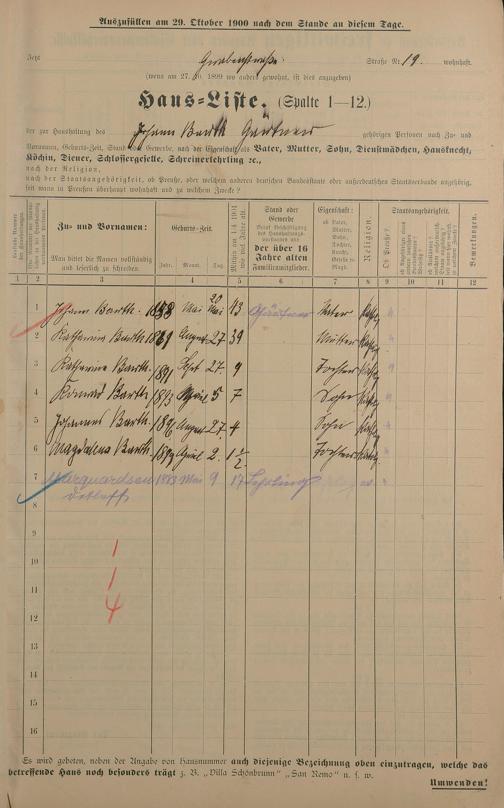 Auszufüllen am 29. Oktober 1900 nach dem Stande an diesem Tage.
Jetzt Grabenstraße Straße Nr. 19. wohnhaft.
(wenn am 27.10.1899 wo anders gewohnt, ist dies anzugeben)
Haus-Liste. (Spalte 1—12.)
der zur Haushaltung des Johann Barth Gärtner gehörigen Personen nach Zu- und
Vornamen, Geburts-Zeit, Stand oder Gewerbe, nach der Eigenschaft als Vater, Mutter, Sohn, Dienstmädchen, Hausknecht,
Köchin, Diener, Schlossergeselle, Schreinerlehrling ꝛc.,
nach der Religion,
nach der Staatsangehörigkeit, ob Preuße, oder welchem anderen deutschen Bundesstaate oder außerdeutschen Staatsverbande angehörig,
seit wann in Preußen überhaupt wohnhaft und zu welchem Zwecke?
Zu- und Vornamen:
Man bittet die Namen vollständig
und leserlich zu schreiben.
Geburts-Zeit.
Jahr. Monat. Tag.
Mithin am 1.4.1901
wie viel Jahre alt.
Stand oder
Gewerbe
der über 16
Jahre alten
Familienmitglieder.
Eigenschaft:
ob Vater,
Mutter,
Sohn,
Tochter,
Religion
Staatsangehörigkeit.
Ob Preuße?
Bemerkungen.
1 2 3 4 5 6 7 8 9 10 11 12
1 Johann Barth. 1858 Mai 20 43 Gärtner Vater kathol. "
2 Katharina Barth 1861 August 27 39 Mutter kathol. "
3 Katharina Barth. 1891 Sept 27 9 Tochter kathol. "
4 Barth 1893 April 5 7 Sohn kathol. "
5 Johannes Barth. 1896 August 27. 4 Sohn kathol. "
6 Magdalena Barth. 1899 April 2. 1½ Tochter kathol. "
7 Marquardsen 1883 Mai 9 17 Lehrling "
Detleff
8
9
10
11
12
13
14
15
16
1
1
4
Es wird gebeten, neben der Angabe von Hausnummer auch diejenige Bezeichnung oben einzutragen, welche das
betreffende Haus noch besonders trägt z. B. „Villa Schönbrunn" „San Remo" u. s. w.
Umwenden!